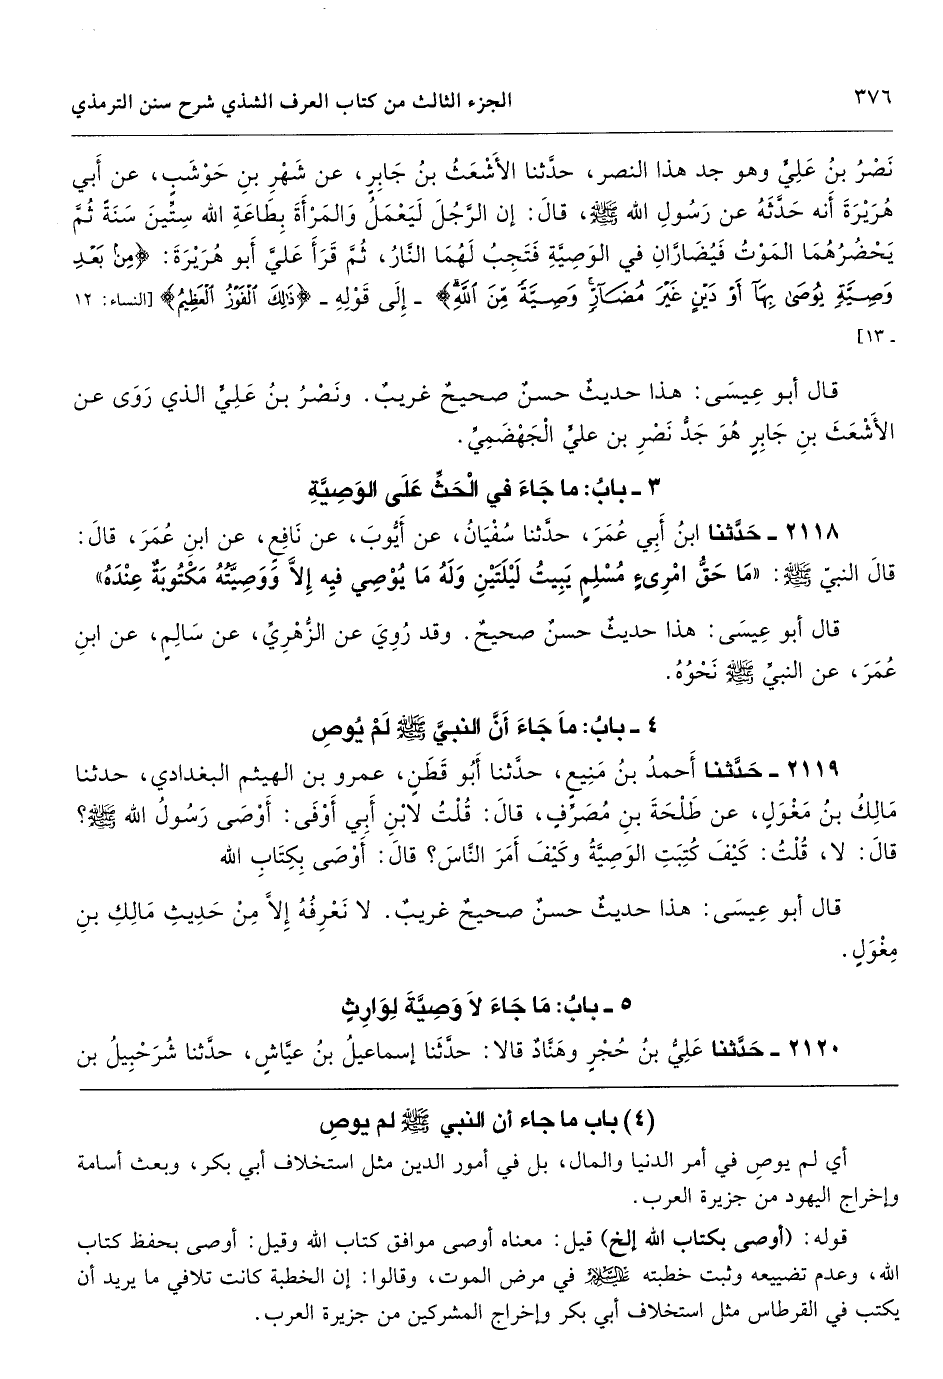 ٣٧٦ الجزء الثالث من كتاب العرف الشذي شرح سنن الترمذي
نَصْرُ بنُ عَلِيٍّ وهو جد هذا النصر، حدَّثنا الأَشْعَثُ بنُ جَابِرٍ، عن شَهْرِ بنِ حَوْشَبٍ، عن أَبي
هُرَيْرَةَ أنه حَدَّثَهُ عن رَسُولِ الله ﷺ، قالَ: إن الرَّجُلَ لَيَعْمَلُ وَالمَرْأَةَ بِطَاعَةِ الله سِتِّينَ سَنَةً ثُمَّ
يَحْضُرُهُمَا المَوْتُ فَيُضَارَّانِ في الوَصِيَّةِ فَتَجِبُ لَهُمَا النَّارُ، ثُمَّ قَرَأَ عَليَّ أبو هُرَيْرَةَ: ﴿مِنۢ بَعْدِ
وَصِيَّةٍ يُوصَىٰ بِهَآ أَوْ دَيْنٍ غَيْرَ مُضَآرٍّ وَصِيَّةً مِّنَ ٱللَّهِ﴾ ـ إلى قَوْلِهِ ـ ﴿ذَٰلِكَ ٱلْفَوْزُ ٱلْعَظِيمُ﴾ [النساء: ١٢
ـ ١٣]
قال أبو عِيسَى: هذا حديثٌ حسنٌ صحيحٌ غريبٌ. ونَصْرُ بنُ عَلِيٍّ الذي رَوَى عن
الأَشْعَثَ بنِ جَابِرٍ هُوَ جَدُّ نَصْرِ بن عليٍّ الْجَهْضَمِيِّ.
٣ ـ بابُ: ما جَاءَ في الْحَثِّ عَلَى الوَصِيَّةِ
٢١١٨ ـ حَدَّثنا ابنُ أَبِي عُمَرَ، حدَّثنا سُفْيَانُ، عن أَيُّوبَ، عن نَافِعٍ، عن ابنِ عُمَرَ، قالَ:
قالَ النبيّ ﷺ: «مَا حَقُّ امْرِىءٍ مُسْلِمٍ يَبِيتُ لَيْلَتَيْنِ وَلَهُ مَا يُوْصِي فيهِ إلاَّ وَوَصِيَّتُهُ مَكْتُوبَةٌ عِنْدَهُ»
قال أبو عِيسَى: هذا حديثٌ حسنٌ صحيحٌ. وقد رُوِيَ عن الزُّهْرِيِّ، عن سَالِمٍ، عن ابنِ
عُمَرَ، عن النبيِّ ﷺ نَحْوُهُ.
٤ ـ بابُ: ماَ جَاءَ أَنَّ النبيَّ ﷺ لَمْ يُوصِ
٢١١٩ ـ حَدَّثنا أَحمدُ بنُ مَنِيعٍ، حدَّثنا أَبُو قَطَنٍ، عمرو بن الهيثم البغدادي، حدثنا
مَالِكُ بنُ مَغْوَلٍ، عن طَلْحَةَ بنِ مُصَرِّفٍ، قالَ: قُلْتُ لابْنِ أَبِي أَوْفَى: أَوْصَى رَسُولُ الله ﷺ؟
قالَ: لا، قُلْتُ: كَيْفَ كُتِبَتِ الوَصِيَّةُ وكَيْفَ أَمَرَ النَّاسَ؟ قالَ: أَوْصَى بِكِتَابِ الله
قال أبو عِيسَى: هذا حديثٌ حسنٌ صحيحٌ غريبٌ. لا نَعْرِفُهُ إلاَّ مِنْ حَدِيثِ مَالِكِ بنِ
مِغْوَلٍ.
٥ ـ بابُ: مَا جَاءَ لاَ وَصِيَّةَ لِوَارِثٍ
٢١٢٠ ـ حَدَّثنا عَلِيُّ بنُ حُجْرٍ وهَنَّادٌ قالا: حدَّثَنا إسماعيلُ بنُ عيَّاشٍ، حدَّثنا شُرَحْبِيلُ بن
(٤) باب ما جاء أن النبي ﷺ لم يوصِ
أي لم يوصِ في أمر الدنيا والمال، بل في أمور الدين مثل استخلاف أبي بكر، وبعث أسامة
وإخراج اليهود من جزيرة العرب.
قوله: (أوصى بكتاب الله إلخ) قيل: معناه أوصى موافق كتاب الله وقيل: أوصى بحفظ كتاب
الله، وعدم تضييعه وثبت خطبته عليه السلام في مرض الموت، وقالوا: إن الخطبة كانت تلافي ما يريد أن
يكتب في القرطاس مثل استخلاف أبي بكر وإخراج المشركين من جزيرة العرب.